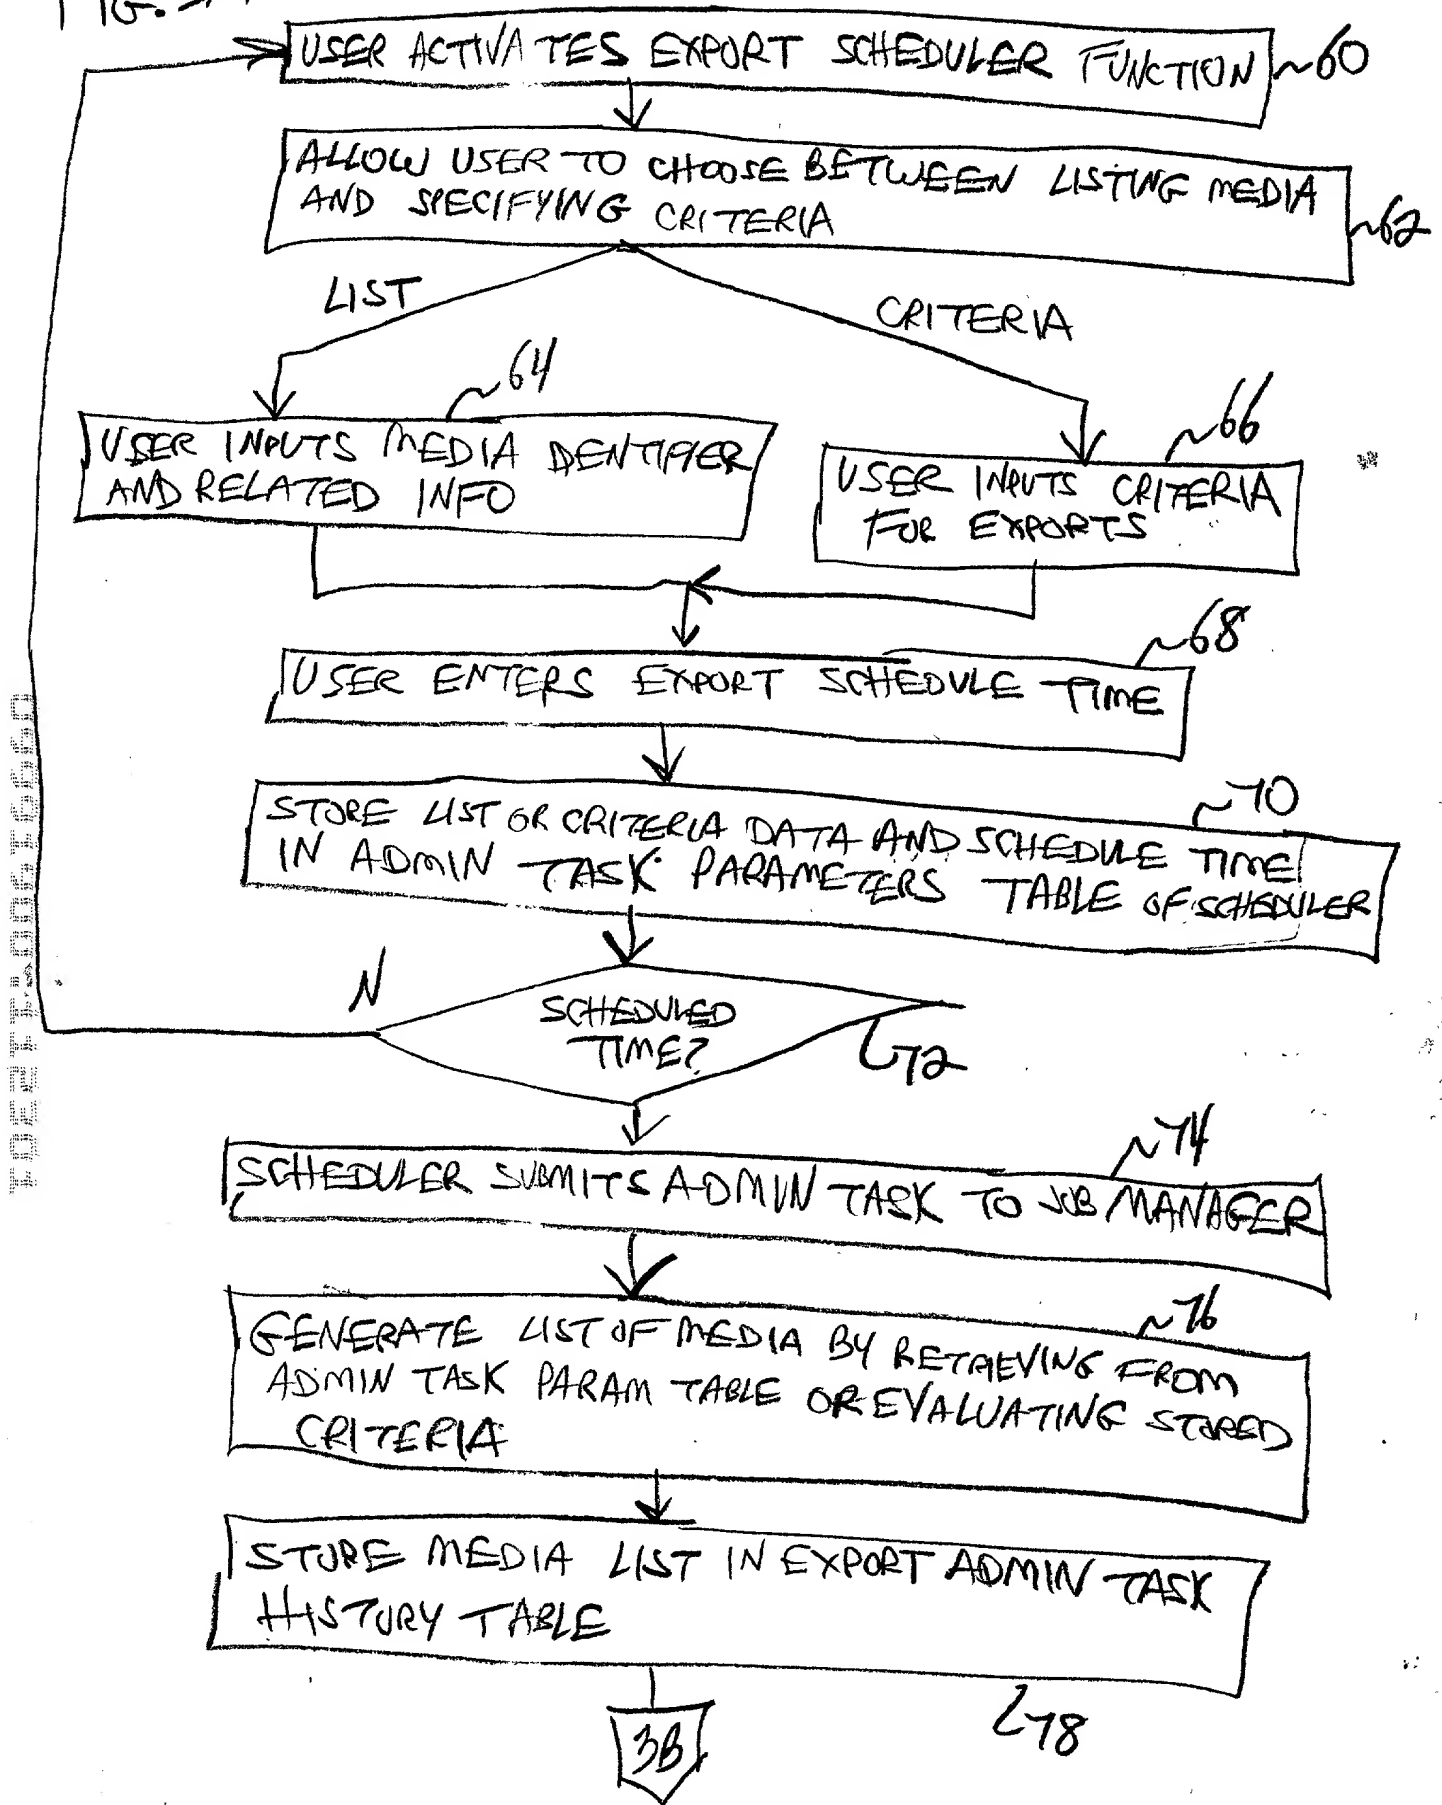 FIG.
USER ACTIVATES EXPORT SCHEDULER FUNCTION ~60
ALLOW USER TO CHOOSE BETWEEN LISTING MEDIA
AND SPECIFYING CRITERIA
~62
LIST
CRITERIA
~64
~66
USER INPUTS MEDIA IDENTIFIER
AND RELATED INFO
USER INPUTS CRITERIA
FOR EXPORTS
~68
USER ENTERS EXPORT SCHEDULE TIME
~70
STORE LIST OR CRITERIA DATA AND SCHEDULE TIME
IN ADMIN TASK PARAMETERS TABLE OF SCHEDULER
N
SCHEDULED
TIME?
72
~74
SCHEDULER SUBMITS ADMIN TASK TO JOB MANAGER
~76
GENERATE LIST OF MEDIA BY RETRIEVING FROM
ADMIN TASK PARAM TABLE OR EVALUATING STORED
CRITERIA
STORE MEDIA LIST IN EXPORT ADMIN TASK
HISTORY TABLE
78
3B